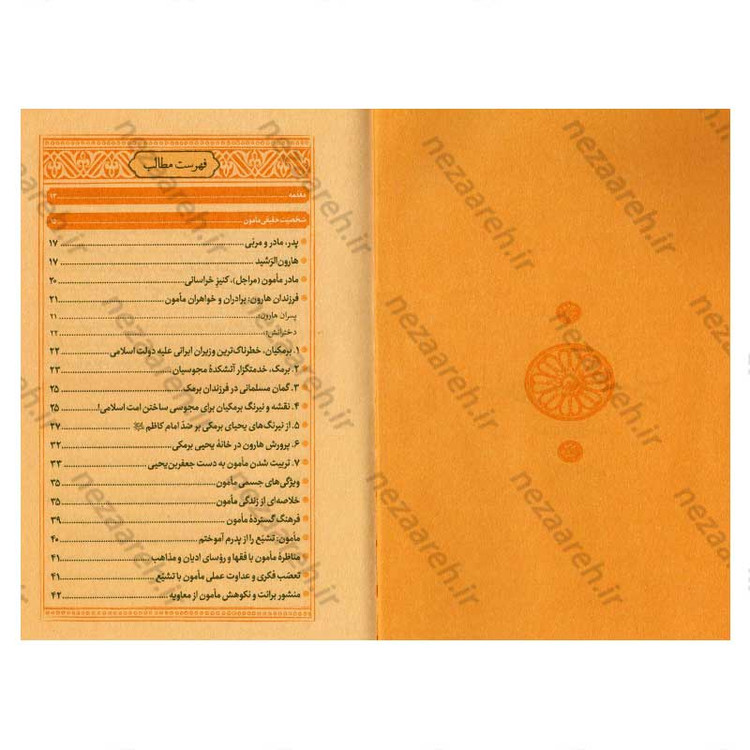 فهرست مطالب
مقدمه ... ۱۳
شخصیت حقیقی مأمون ... ۱۵
پدر، مادر و مربّی ... ۱۷
هارون‌الرّشید ... ۱۷
مادر مأمون (مراجل)، کنیز خراسانی ... ۲۰
فرزندان هارون: برادران و خواهران مأمون ... ۲۱
پسران هارون: ... ۲۱
دخترانش: ... ۲۲
۱. برمکیان، خطرناک‌ترین وزیران ایرانی علیه دولت اسلامی ... ۲۲
۲. برمک، خدمتگزار آتشکدهٔ مجوسیان ... ۲۳
۳. گمان مسلمانی در فرزندان برمک ... ۲۵
۴. نقشه و نیرنگ برمکیان برای مجوسی ساختن امت اسلامی! ... ۲۵
۵. از نیرنگ‌های یحیای برمکی بر ضدّ امام کاظم ... ۲۷
۶. پرورش هارون در خانهٔ یحیی برمکی ... ۳۲
۷. تربیت شدن مأمون به دست جعفربن‌یحیی ... ۳۳
ویژگی‌های جسمی مأمون ... ۳۵
خلاصه‌ای از زندگی مأمون ... ۳۵
فرهنگ گستردهٔ مأمون ... ۳۹
مأمون: تشیّع را از پدرم آموختم ... ۴۰
مناظرهٔ مأمون با فقها و رؤسای ادیان و مذاهب ... ۴۱
تعصّب فکری و عداوت عملی مأمون با تشیّع ... ۴۱
منشور برائت و نکوهش مأمون از معاویه ... ۴۲
nezaareh.ir